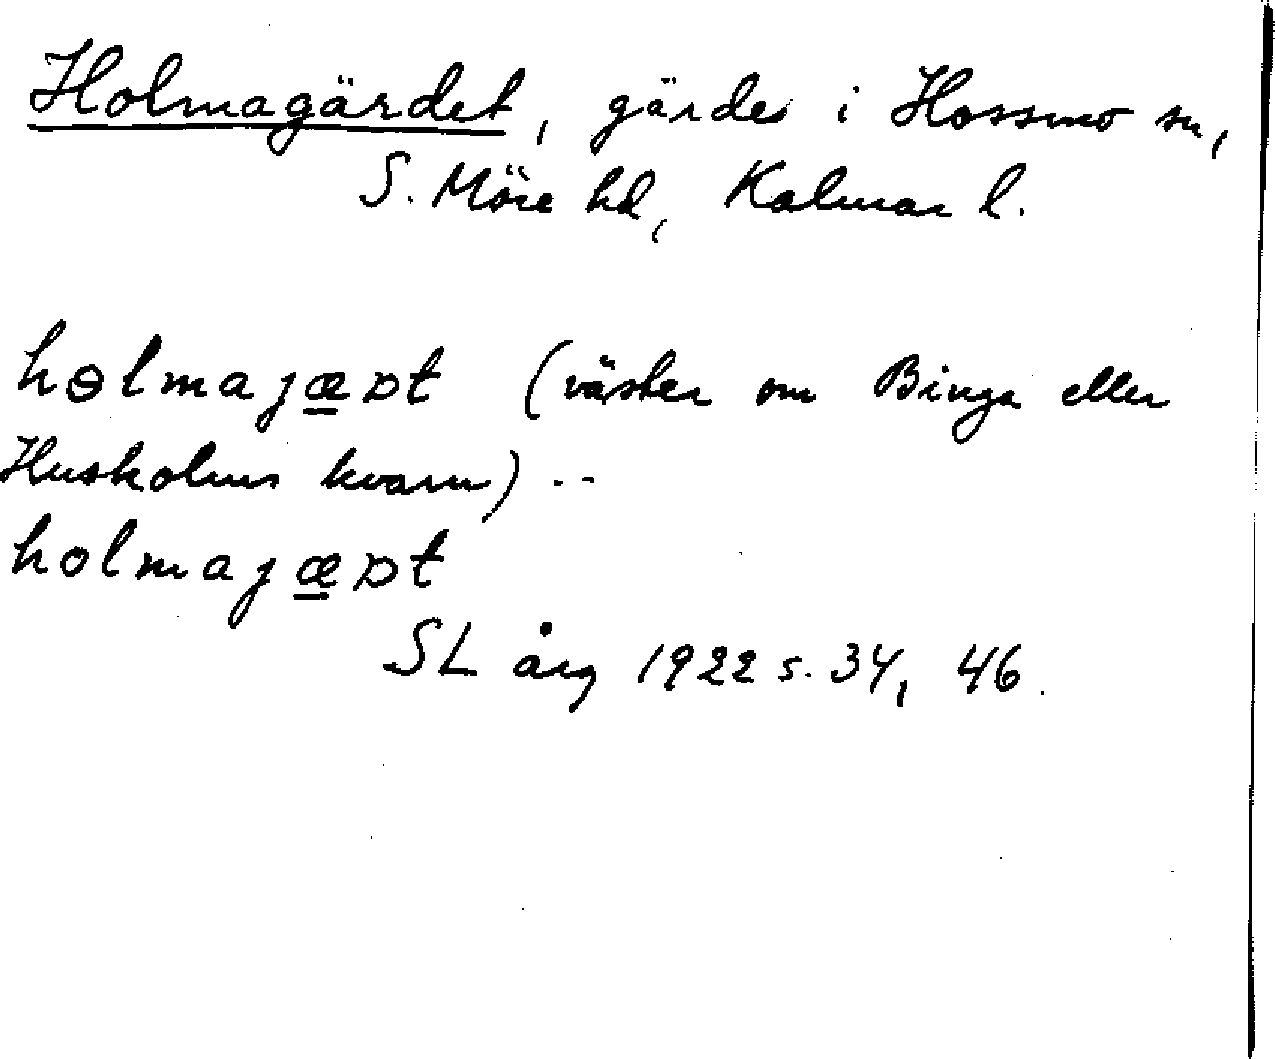 Holmagärdet, gärde i Hossmo sn,
S. Möre hd, Kalmar l.
hɵlmajæɒt (väster om Binga eller
Huskolms kvarn) --
holmajæɒt
SL årg 1922 s. 34, 46.